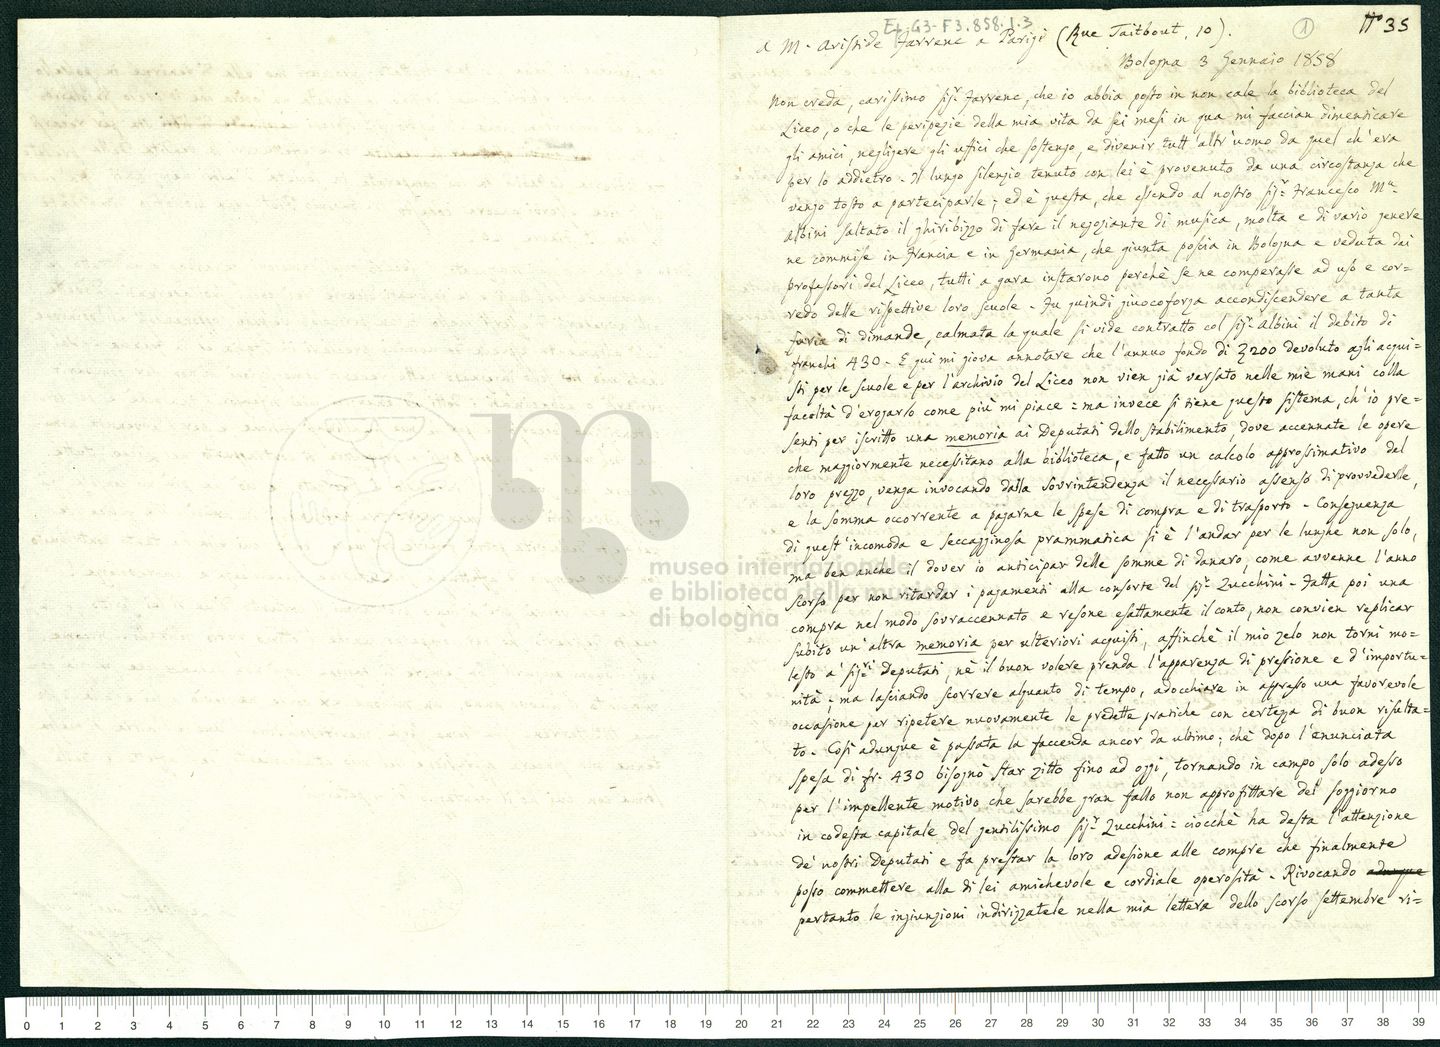 Ep. G3-F3.858.1.3
1
N° 35
A M.r Aristide Farrenc a Parigi (Rue Taitbout, 10).
Bologna 3 Gennaio 1858
Non creda, carissimo Sig.r Farrenc, che io abbia posto in non cale la biblioteca del
Liceo, o che le peripezie della mia vita da sei mesi in qua mi faccian dimenticare
gli amici, negligere gli uffici che sostengo, e divenir tutt'altr'uomo da quel ch'era
per lo addietro. Il lungo silenzio tenuto con lei è provenuto da una circostanza che
vengo tosto a parteciparle; ed è questa, che essendo al nostro Sig.r Francesco M.a
Albini saltato il ghiribizzo di fare il negoziante di musica, molta e di vario genere
ne commise in Francia e in Germania, che giunta poscia in Bologna e veduta dai
professori del Liceo, tutti a gara instarono perchè se ne comperasse ad uso e cor=
redo delle rispettive loro scuole. Fu quindi giuocoforza accondiscendere a tanta
furia di dimande, calmata la quale si vide contratto col Sig.r Albini il debito di
franchi 430. E qui mi giova annotare che l'annuo fondo di 200 devoluto agli acqui=
sti per le scuole e per l'archivio del Liceo non vien già versato nelle mie mani colla
facoltà d'erogarlo come più mi piace = ma invece si tiene questo sistema, ch'io pre=
senti per iscritto una memoria ai Deputati dello stabilimento, dove accennate le opere
che maggiormente necessitano alla biblioteca, e fatto un calcolo approssimativo del
loro prezzo, venga invocando dalla Sovrintendenza il necessario assenso di provvederle,
e la somma occorrente a pagarne le spese di compra e di trasporto. Conseguenza
di quest'incomoda e seccagginosa prammatica si è l'andar per le lunghe non solo,
ma ben anche il dover io anticipar delle somme di danaro, come avvenne l'anno
scorso per non ritardar i pagamenti alla consorte del Sig.r Zucchini. Fatta poi una
compra nel modo sovraccennato e resone esattamente il conto, non convien replicar
subito un'altra memoria per ulteriori acquisti, affinchè il mio zelo non torni mo=
lesto a' Sig.ri Deputati, nè il buon volere prenda l'apparenza di pressione e d'importu=
nità; ma lasciando scorrere alquanto di tempo, adocchiare in appresso una favorevole
occasione per ripetere nuovamente le predette pratiche con certezza di buon risulta=
to. Così adunque è passata la faccenda ancor da ultimo; chè dopo l'enunciata
spesa di fr. 430 bisognò star zitto fino ad oggi, tornando in campo solo adesso
per l'impellente motivo che sarebbe gran fallo non approfittare del soggiorno
in codesta capitale del gentilissimo Sig.r Zucchini = ciocchè ha desta l'attenzione
de' nostri Deputati e fa prestar la loro adesione alle compre che finalmente
posso commettere alla di lei amichevole e cordiale operosità. Rivocando adunque
pertanto le ingiunzioni indirizzatele nella mia lettera dello scorso settembre ri=
museo internazionale
e biblioteca della musica
di bologna
0 1 2 3 4 5 6 7 8 9 10 11 12 13 14 15 16 17 18 19 20 21 22 23 24 25 26 27 28 29 30 31 32 33 34 35 36 37 38 39